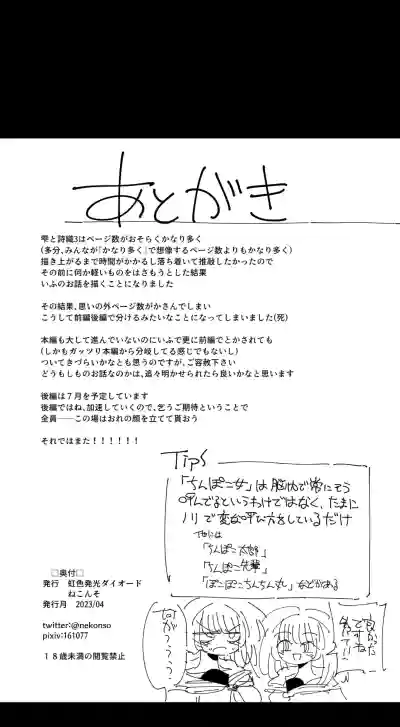 あとがき
雫と詩織3はページ数がおそらくかなり多く
(多分、みんなが「かなり多く」で想像するページ数よりもかなり多く)
描き上がるまで時間がかかるし落ち着いて推敲したかったので
その前に何か軽いものをはさもうとした結果
いふのお話を描くことになりました
その結果、思いの外ページ数がかさんでしまい
こうして前編後編で分けるみたいなことになってしまいました(死)
本編も大して進んでいないのにいふで更に前編でとかされても
(しかもガッツリ本編から分岐してる感じでもないし)
ついてきづらいかなとも思うのですが、ご容赦下さい
どうもしものお話なのかは、追々明かせられたら良いかなと思います
後編は7月を予定しています
後編ではね、加速していくので、乞うご期待ということで
全員――この場はおれの顔を立てて貰おう
それではまた!!!!!!
Tips
「ちんぽこ女」は脳内で常にそう
呼んでるというわけではなく、たまに
ノリで変な呼び方をしているだけ
他には
「ちんぽこ太郎」
「ちんぽこ先輩」
「ぽこぽこちんちん丸」などがある
□奥付□
発行 虹色発光ダイオード
ねこんそ
発行月 2023/04
twitter:@nekonso
pixiv:161077
18歳未満の閲覧禁止
良かった
ですね